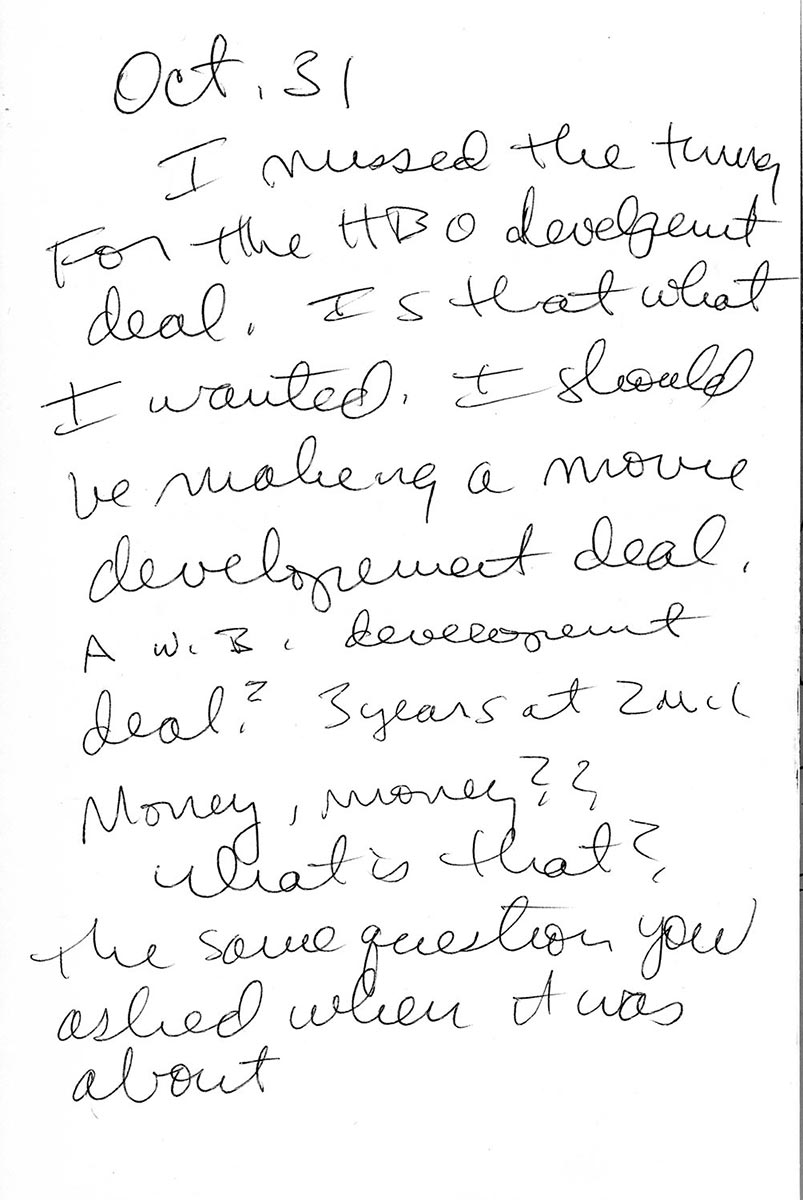 Oct. 31
I missed the timing
For the HBO develpemt
deal. Is that what
I wanted. I should
be making a movie
developement deal.
A W.B. development
deal? 3 years at 2 Mil
Money, money??
What is that?
the same question you
asked when it was
about